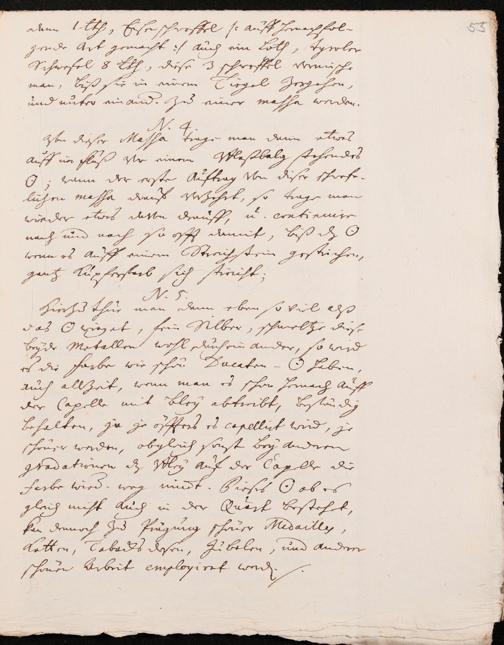 53
dann 1 Lth, Eisenschwefel /: auff hernachfol-
gende Art gemacht :/ auch ein Loth, Tyroler
Schwefel 8 Lth, diese 3 schweffel vermische
man, biß sie in einem Tiegel zergehen,
und unter einand. zu einer massa werden.
N. 4.
Von dieser Massa trage man dann etwas
auff im fluß vor einem Blasbalg stehendes
☉; wann der erste Auftrag von dieser schwef-
lichen massa drauff verzehrt, so trage man
wieder etwas davon drauff, u. continuire
nach und nach so offt damit, biß dz ☉
wenn es auff einem Streichstein gestrichen,
gantz Kupferfarb sich streicht;
N. 5.
Hierzu thue man dann eben so viel als
das ☉ wieget, fein Silber, schmeltze diese
beyde Metallen wohl durcheinander, so wird
es die farbe wie schön Ducaten-☉ haben,
auch allzeit, wenn man es schon hernach auff
der Capelle mit Bley abtreibt, beständig
behalten, ja je öffters es capellirt wird, je
schöner werden, obgleich sonst bey anderen
gradationen dz Bley auf der Capelle die
farbe wied. weg nimt. Dieses ☉ ob es
gleich nicht auch in der Quart bestehet,
kan dennoch zu Prägung schöner Medailles,
Ketten, Tabacksdosen, und andere
schöner Arbeit employirt werd.